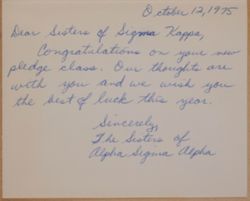 October 12, 1975
Dear Sisters of Sigma Kappa,
Congratulations on your new
pledge class. Our thoughts are
with you and we wish you
the best of luck this year.
Sincerely,
The Sisters of
Alpha Sigma Alpha